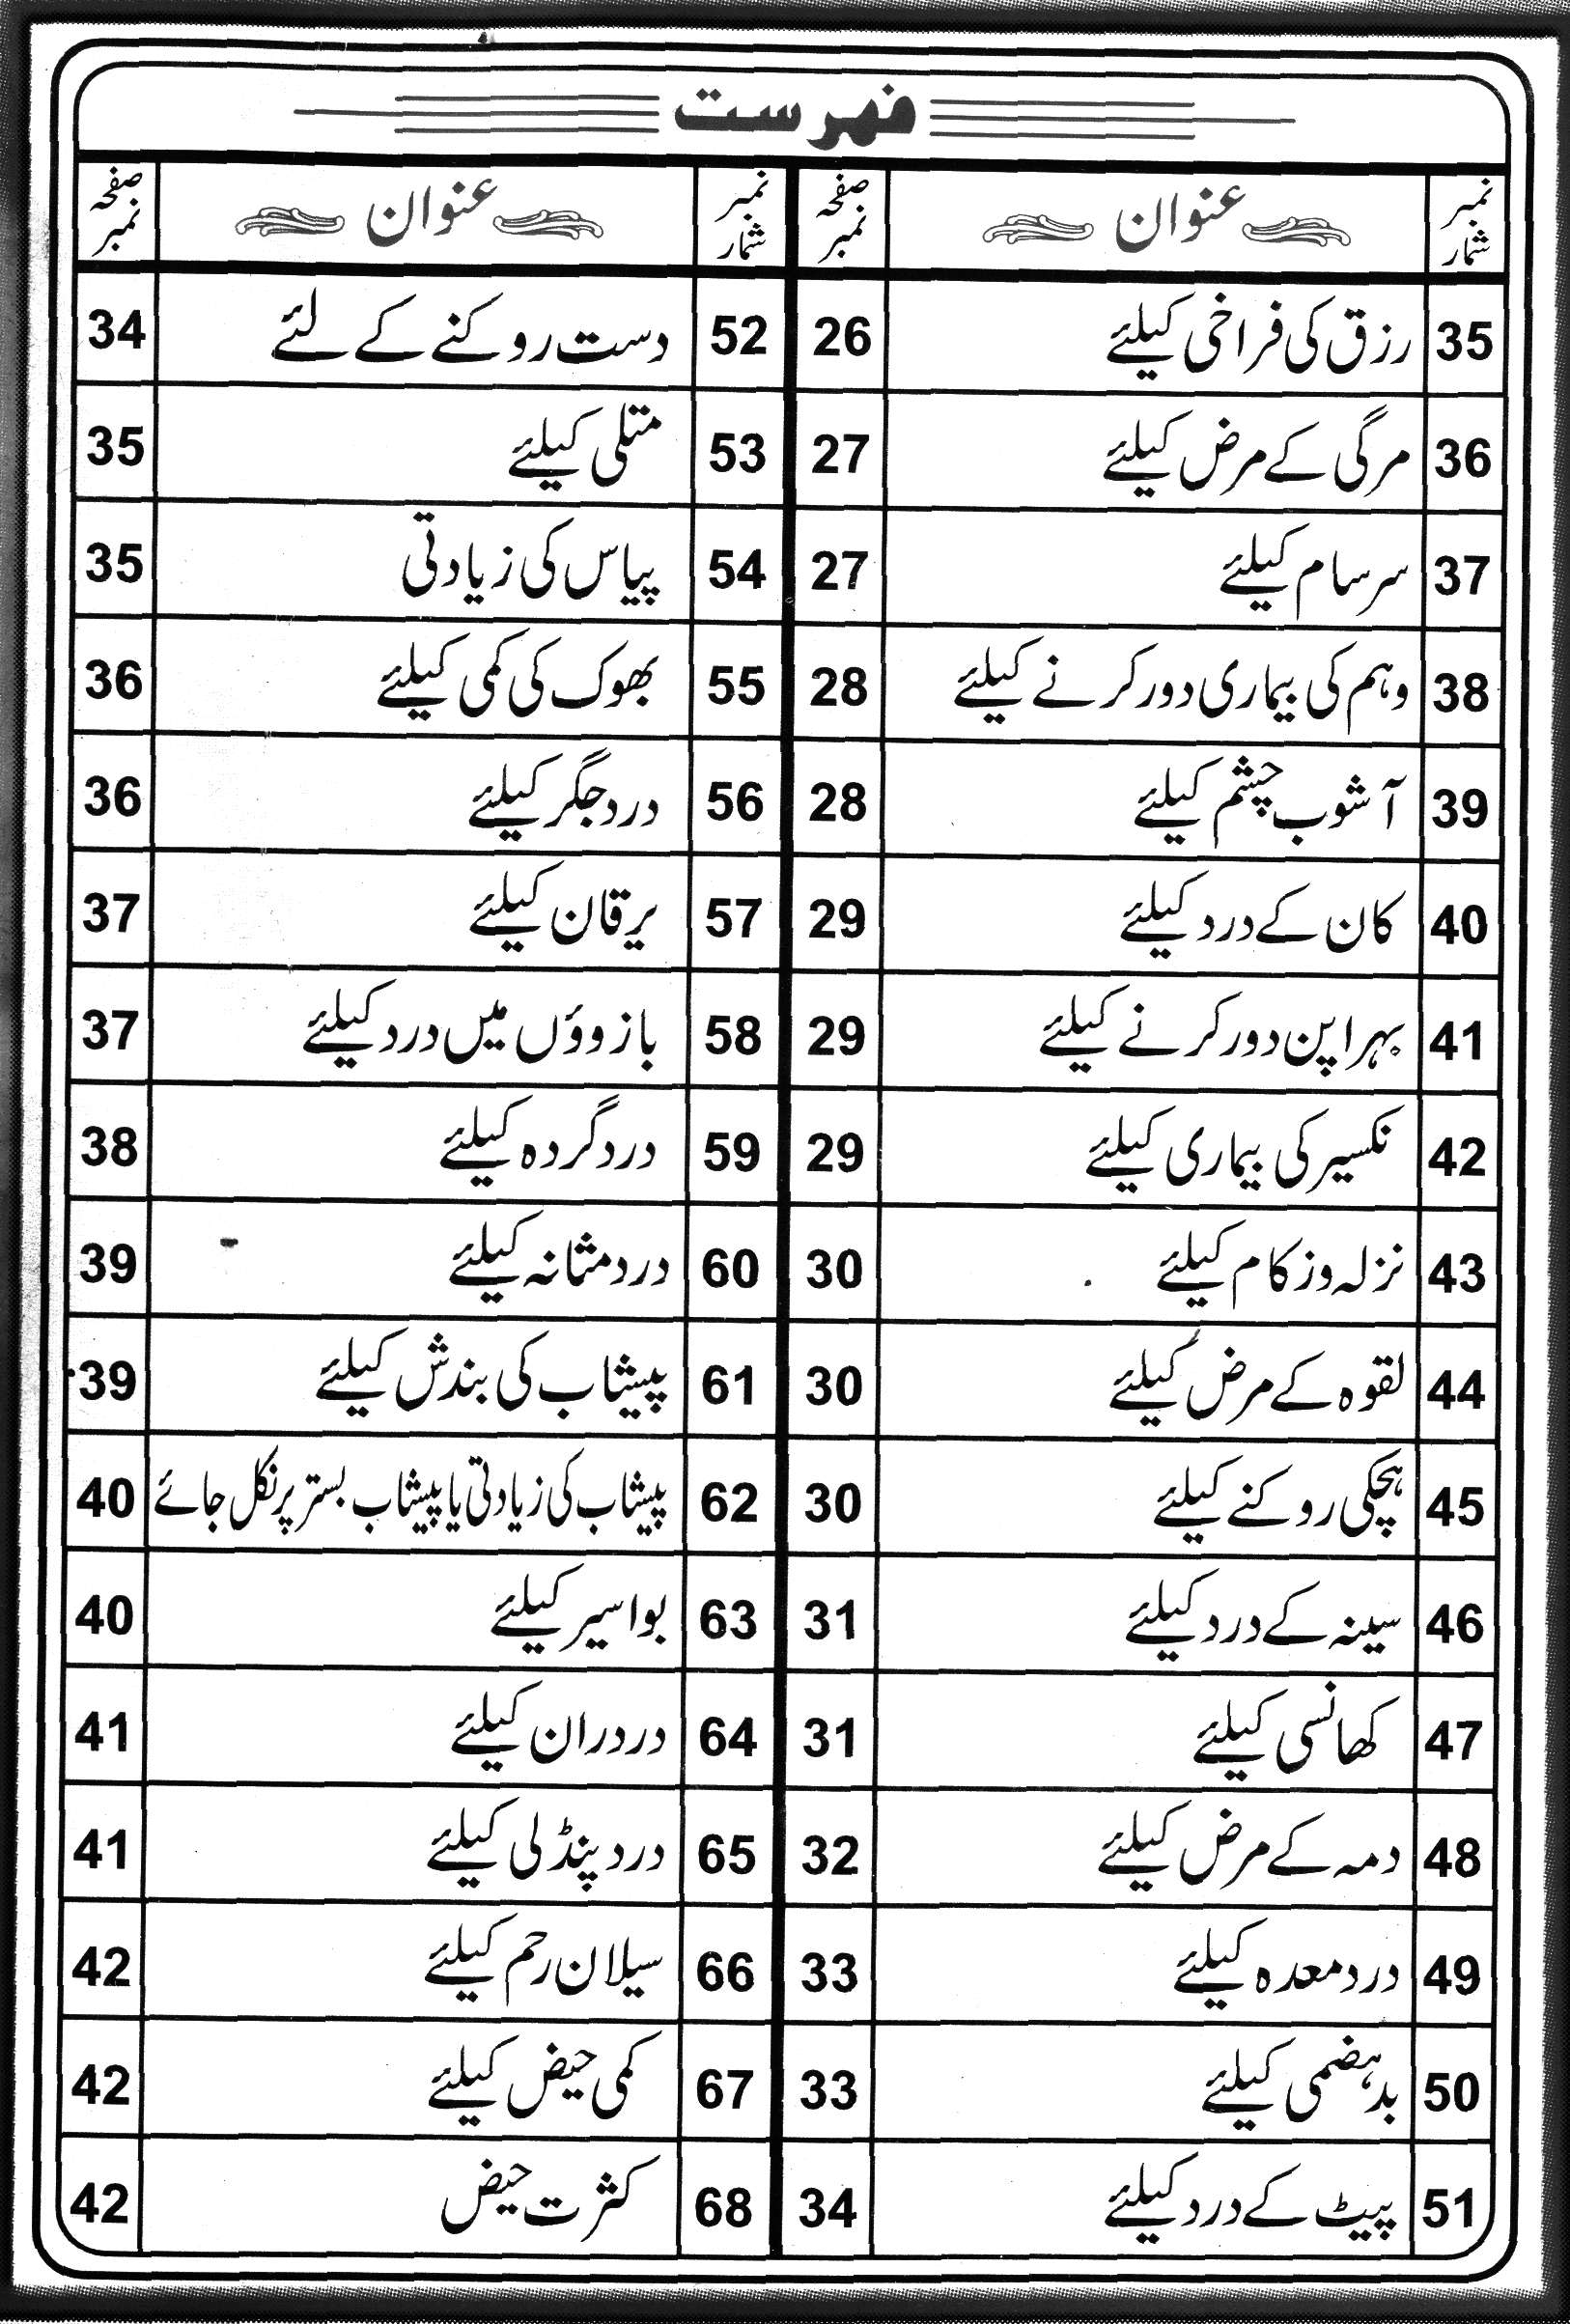 فہرست
نمبر شمار عنوان صفحہ نمبر نمبر شمار عنوان صفحہ نمبر
35 رزق کی فراخی کیلئے 26 52 دست روکنے کے لئے 34
36 مرگی کے مرض کیلئے 27 53 متلی کیلئے 35
37 سرسام کیلئے 27 54 پیاس کی زیادتی 35
38 وہم کی بیماری دور کرنے کیلئے 28 55 بھوک کی کمی کیلئے 36
39 آشوب چشم کیلئے 28 56 درد جگر کیلئے 36
40 کان کے درد کیلئے 29 57 یرقان کیلئے 37
41 بہرا پن دور کرنے کیلئے 29 58 بازوؤں میں درد کیلئے 37
42 نکسیر کی بیماری کیلئے 29 59 درد گردہ کیلئے 38
43 نزلہ و زکام کیلئے 30 60 درد مثانہ کیلئے 39
44 لقوہ کے مرض کیلئے 30 61 پیشاب کی بندش کیلئے 39
45 ہچکی روکنے کیلئے 30 62 پیشاب کی زیادتی یا پیشاب بستر پر نکل جائے 40
46 سینہ کے درد کیلئے 31 63 بواسیر کیلئے 40
47 کھانسی کیلئے 31 64 درد ران کیلئے 41
48 دمہ کے مرض کیلئے 32 65 درد پنڈلی کیلئے 41
49 درد معدہ کیلئے 33 66 سیلان رحم کیلئے 42
50 بد ہضمی کیلئے 33 67 کمی حیض کیلئے 42
51 پیٹ کے درد کیلئے 34 68 کثرت حیض 42